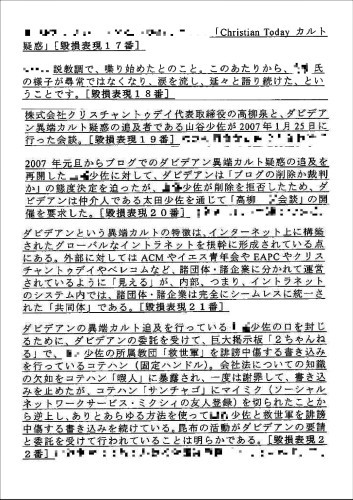 「Christian Today カルト
疑惑」[毀損表現17番]
説教調で、喋り始めたとのこと。このあたりから、 氏
の様子が尋常ではなくなり、涙を流し、延々と語り続けた、とい
うことです。[毀損表現18番]
株式会社クリスチャントゥデイ代表取締役の高柳泉と、ダビデア
ン異端カルト疑惑の追及者である山谷少佐が2007年1月25日に
行った会談。[毀損表現19番]
2007 年元旦からブログでのダビデアン異端カルト疑惑の追及を
再開した 少佐に対して、ダビデアンは「ブログの削除か裁判
か」の態度決定を迫ったが、 少佐が削除を拒否したため、ダ
ビデアンは仲介人である太田少佐を通じて「高柳 会談」の開
催を要求した。[毀損表現20番]
ダビデアンという異端カルトの特徴は、インターネット上に構築
されたグローバルなイントラネットを根幹に形成されている点
にある。外部に対しては ACM やイエス青年会や EAPC やクリス
チャントゥデイやベレコムなど、諸団体・諸企業に分かれて運営
されているように「見える」が、内部、つまり、イントラネット
のシステム内では、諸団体・諸企業は完全にシームレスに統一さ
れた「共同体」である。[毀損表現21番]
ダビデアンの異端カルト追及を行っている 少佐の口を封じ
るために、ダビデアンの委託を受けて、巨大掲示板「2ちゃんね
る」で、 少佐の所属教団「救世軍」を誹謗中傷する書き込み
を行っているコテハン(固定ハンドル)。会社法についての知識
の欠如をコテハン「暇人」に暴露され、一度は謝罪して、書き込
みを止めたが、コテハン「サンチャゴ」にマイミク(ソーシャル
ネットワークサービス・ミクシィの友人登録)を切られたことか
ら逆上し、ありとあらゆる方法を使って 少佐と救世軍を誹謗
中傷する書き込みを続けている。昆布の活動がダビデアンの要請
と委託を受けて行われていることは明らかである。[毀損表現2
2番]